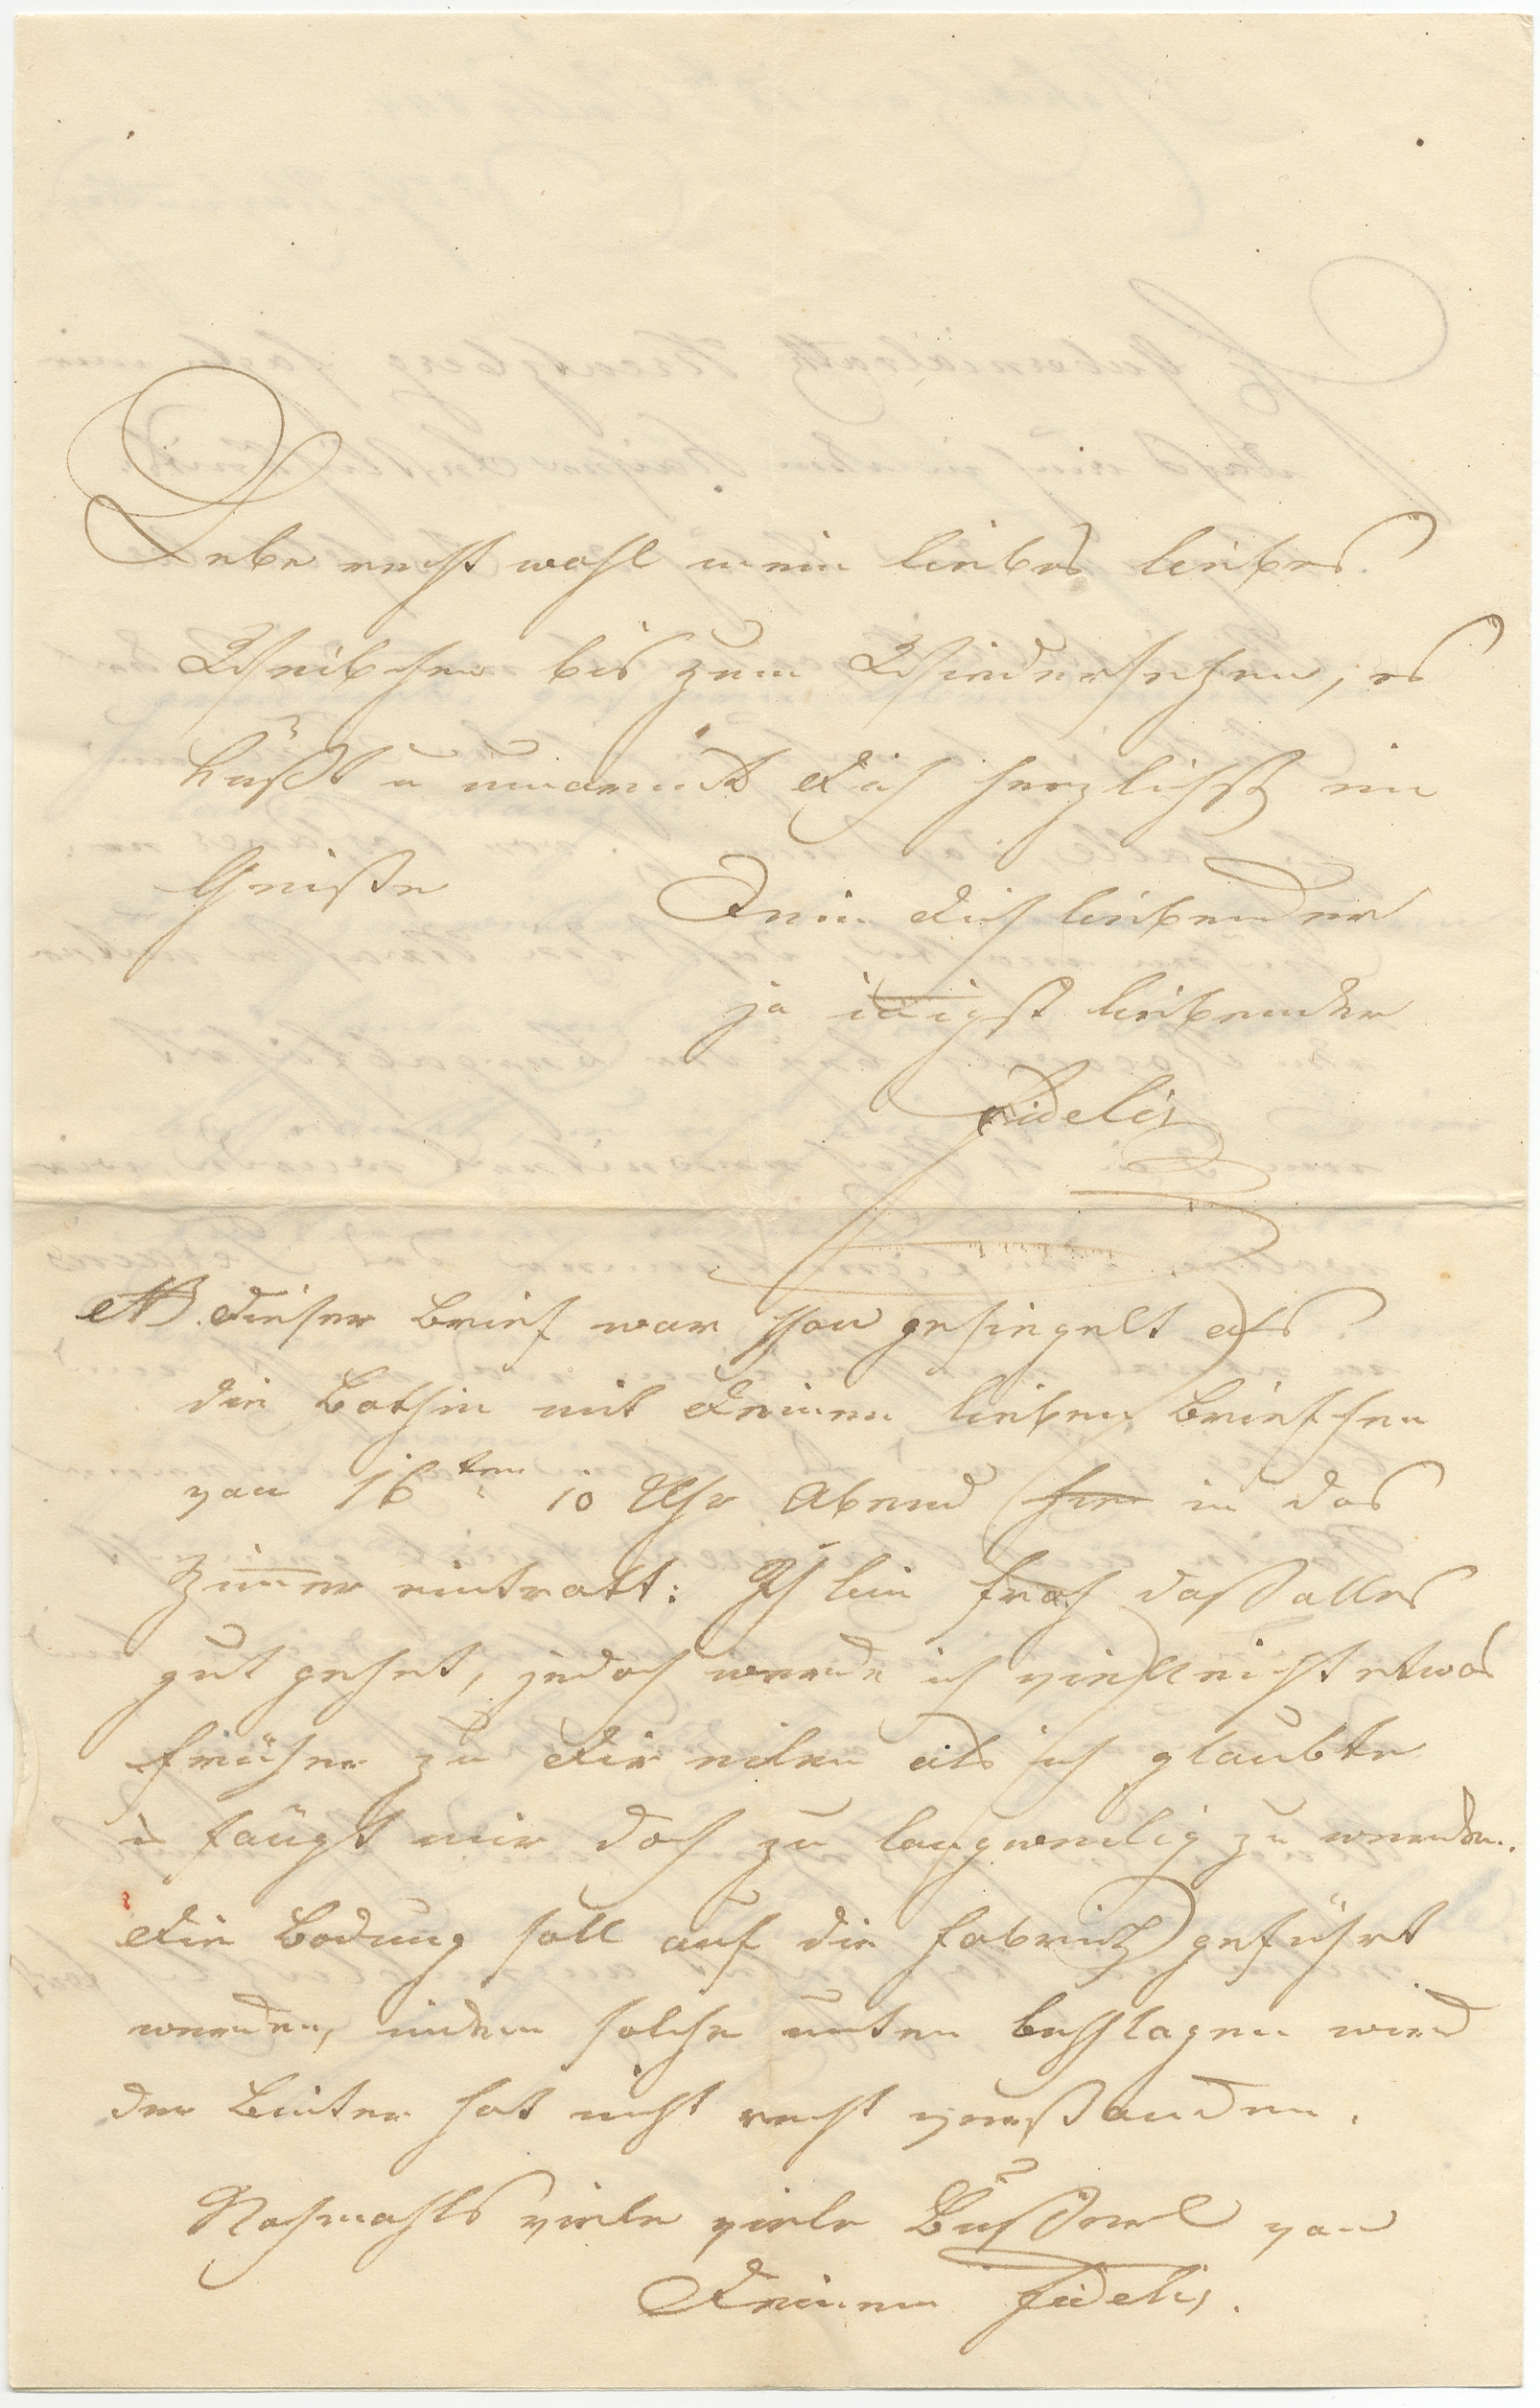 Lebe recht wohl mein liebes liebes
Weibchen bis zum Wiedersehen, es
küßt u umarmt Dich herzlichst im
Geiste Dein Dich liebender
ja innigst liebender
Fidelis
NB. Dieser Brief war schon gesiegelt als
die Bothin mit Deinem lieben Briefchen
von 16ten 10 Uhr Abend hier in das
Zimmer eintratt: Ich bin froh daß alles
gut gehet, jedoch werde ich vielleicht etwas
früher zu Dir eilen als ich glaubte
es fängt mir doch zu langweilig zu werden.
Die Bodung soll auf die Fabrick geführt
werden, indem solche unten beschlagen wird
der Binter hat nicht recht verstanden.
Nochmahls viele viele Bußerl von
Deinem Fidelis.